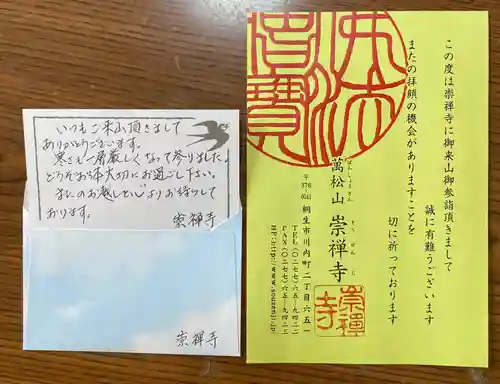 いつもご来山頂きまして
ありがとうございます。
寒さも一層厳しくなって参りました。
どうぞお体大切にお過ごし下さい。
またのお越し心よりお待ちして
おります。
崇禅寺
崇禅寺
この度は崇禅寺に御来山御参詣頂きまして
誠に有難うございます
またの拝顔の機会がありますことを
切に祈っております
ばんしょうざん そうぜんじ
萬松山 崇禅寺
〒376-0041 桐生市川内町二丁目六五一
TEL(〇二七七)六五-九四二二
FAX(〇二七七)六五-九四二三
HP:http://www.souzenji.jp/
崇禅寺